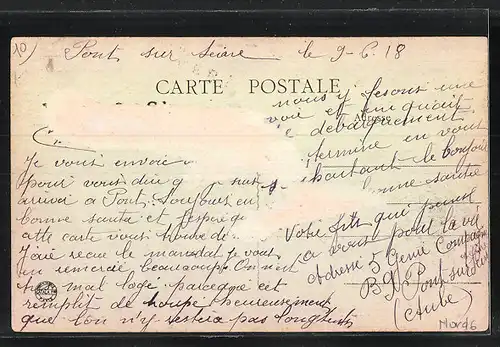 10)
Pont sur Seine le 9-6.18
CARTE POSTALE
nous y fesons une
voie et un quait
Adresse
de debarquement
termine en vous
souhaitant le bonjour
bonne santé
Je vous envoie
pour vous dire que je suis
arrivé a Pont toujours en
bonne santé et j'espère q
cette carte vous trouve de
J'aie recue le mandat je vous
en remercie beaucoup On n'est
mal logé parceque c'est
remplit de troupe heureusement
que l'on n'y restera pas longtemps
Votre fils qui pense
a vous pour la vie
Adresse 5 Genie Compagnie
B.G.P Pont sur Seine
(Aube)
Nord 6